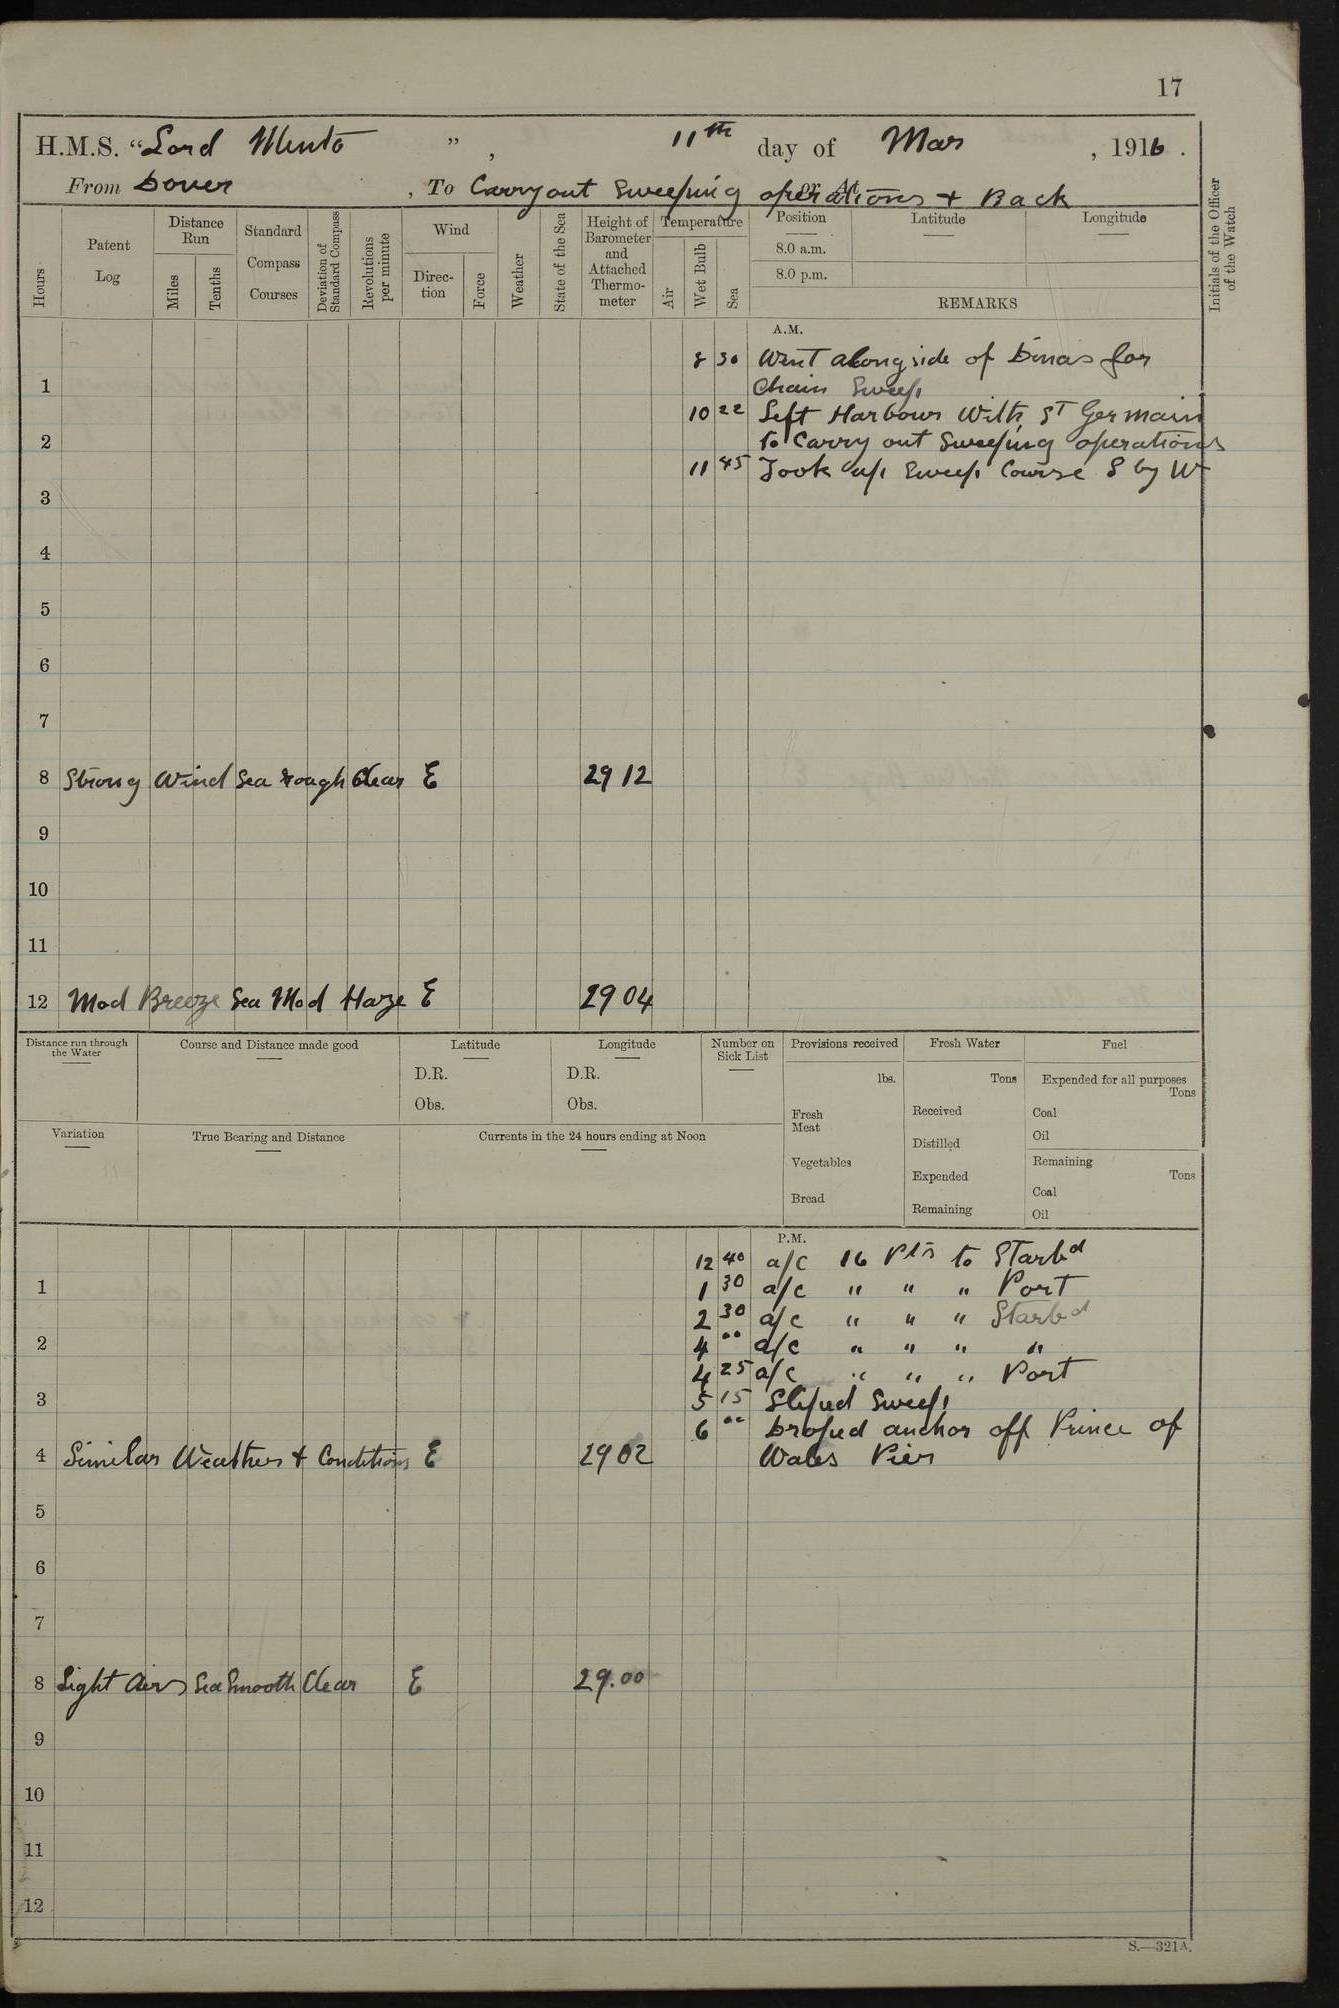 17
H.M.S. "Lord Minto", 11th day of Mar, 1916.
From Dover, To Carry out Sweeping operations + Back
or At
Hours
Patent Log
Distance Run
Miles
Tenths
Standard Compass Courses
Deviation of Standard Compass
Revolutions per minute
Wind
Direction
Force
Weather
State of the Sea
Height of Barometer and Attached Thermometer
Temperature
Air
Wet Bulb
Sea
Position
Latitude
Longitude
8.0 a.m.
8.0 p.m.
REMARKS
Initials of the Officer of the Watch
A.M.
8 30 Went alongside of Dinas for
Chain Sweep
1
10 22 Left Harbour With St Germain
2 to Carry out Sweeping operations
11 45 Took up Sweep Course S by W
3
4
5
6
7
8 Strong Wind Sea rough Clear E 29 12
9
10
11
12 Mod Breeze Sea Mod Haze E 29 04
Distance run through the Water
Course and Distance made good
Latitude
D.R.
Obs.
Longitude
D.R.
Obs.
Number on Sick List
Provisions received
lbs.
Fresh Meat
Vegetables
Bread
Fresh Water
Tons
Received
Distilled
Expended
Remaining
Fuel
Expended for all purposes
Tons
Coal
Oil
Remaining
Tons
Coal
Oil
Variation
True Bearing and Distance
Currents in the 24 hours ending at Noon
P.M.
12 40 a/c 16 Pts to Starbd
1
1 30 a/c " " " Port
2 30 a/c " " " Starbd
2
4 00 a/c " " " "
4 25 a/c " " " Port
3
5 15 Sliped Sweep
6 00 Droped anchor off Prince of
4 Similar Weather + Conditions E 29 02 Wales Pier
5
6
7
8 Light Airs Sea Smooth Clear E 29.00
9
10
11
12
S.—321A.